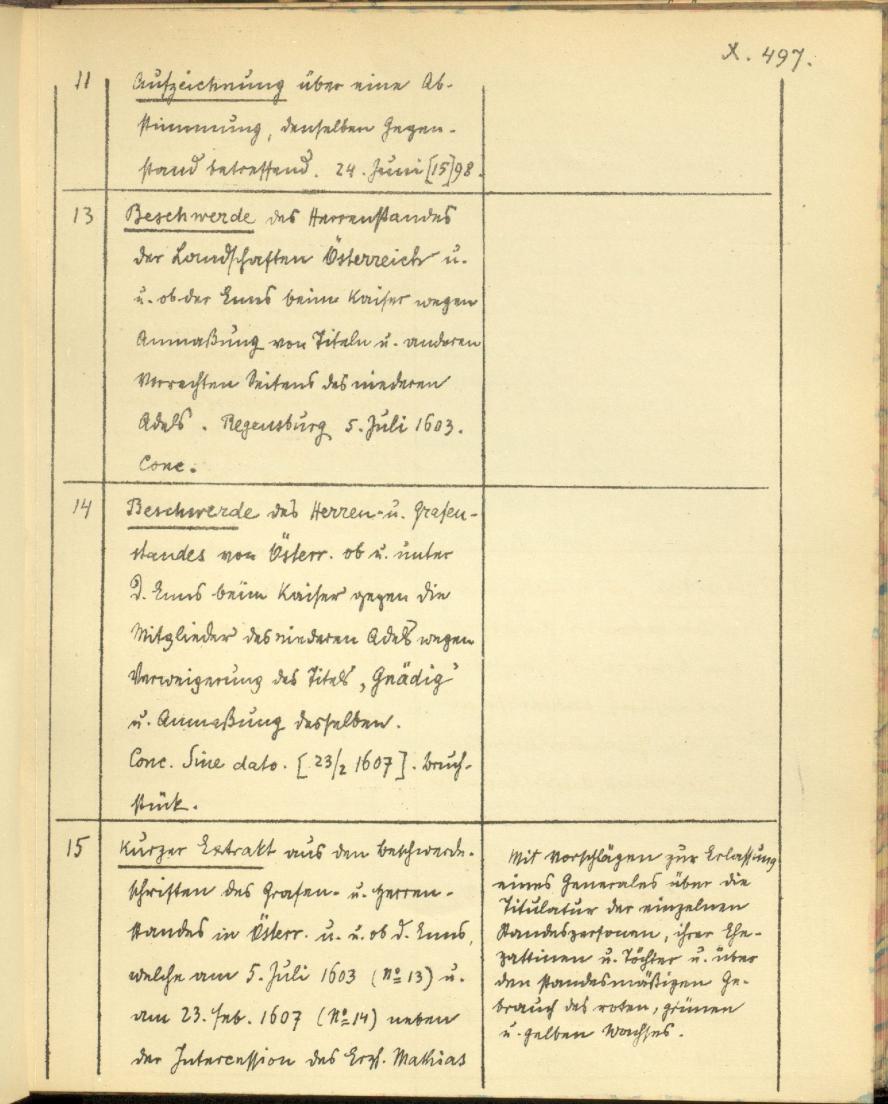 X. 497.
11 Aufzeichnung über eine Ab-
stimmung, denselben Gegen-
stand betreffend. 24. Juni [15]98.
13 Beschwerde des Herrenstandes
der Landschaften Österreich u.
u. ob der Enns beim Kaiser wegen
Anmaßung von Titeln u. anderen
Vorrechten Seitens des niederen
Adels. Regensburg 5. Juli 1603.
Conc.
14 Beschwerde des Herren- u. Grafen-
standes von Österr. ob u. unter
d. Enns beim Kaiser gegen die
Mitglieder des niederen Adels wegen
Verweigerung des Titels „Gnädig"
u. Anmaßung desselben.
Conc. Sine dato. [23/2 1607]. Bruch-
stück.
15 Kurzer Extrakt aus den Beschwerde-
schriften des Grafen- u. Herren-
standes in Österr. u. u. ob d. Enns,
welche am 5. Juli 1603 (No 13) u.
am 23. Feb. 1607 (No 14) neben
der Intercession des Erzh. Mathias
Mit Vorschlägen zur Erlassung
eines Generales über die
Titulatur der einzelnen
Standespersonen, ihrer Ehe-
gattinen u. Töchter u. über
den standesmäßigen Ge-
brauch des roten, grünen
u. gelben Wachses.